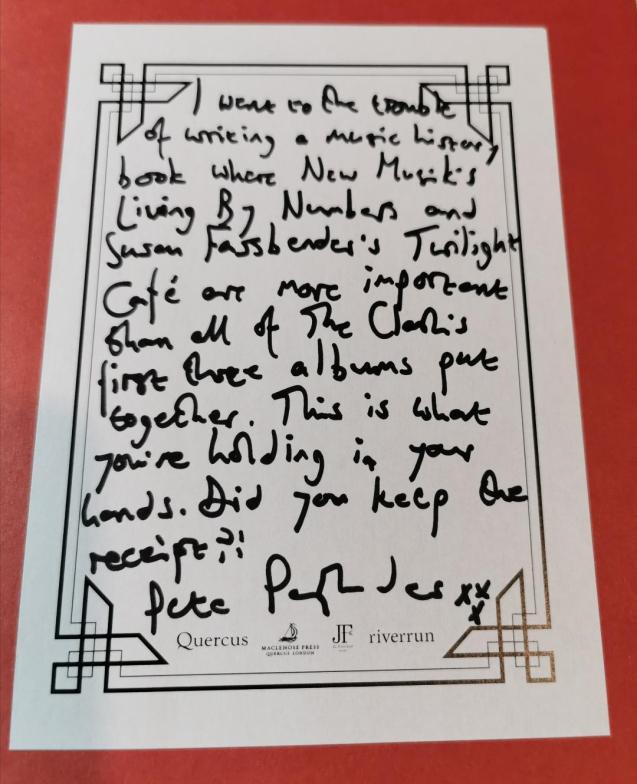 I went to the trouble
of writing a music history
book where New Musik's
Living By Numbers and
Susan Fassbender's Twilight
Café are more important
than all of The Clash's
first three albums put
together. This is what
you're holding in your
hands. Did you keep the
receipt?!
Pete Paphides xxx
Quercus
MACLEHOSE PRESS
QUERCUS LONDON
JF
riverrun